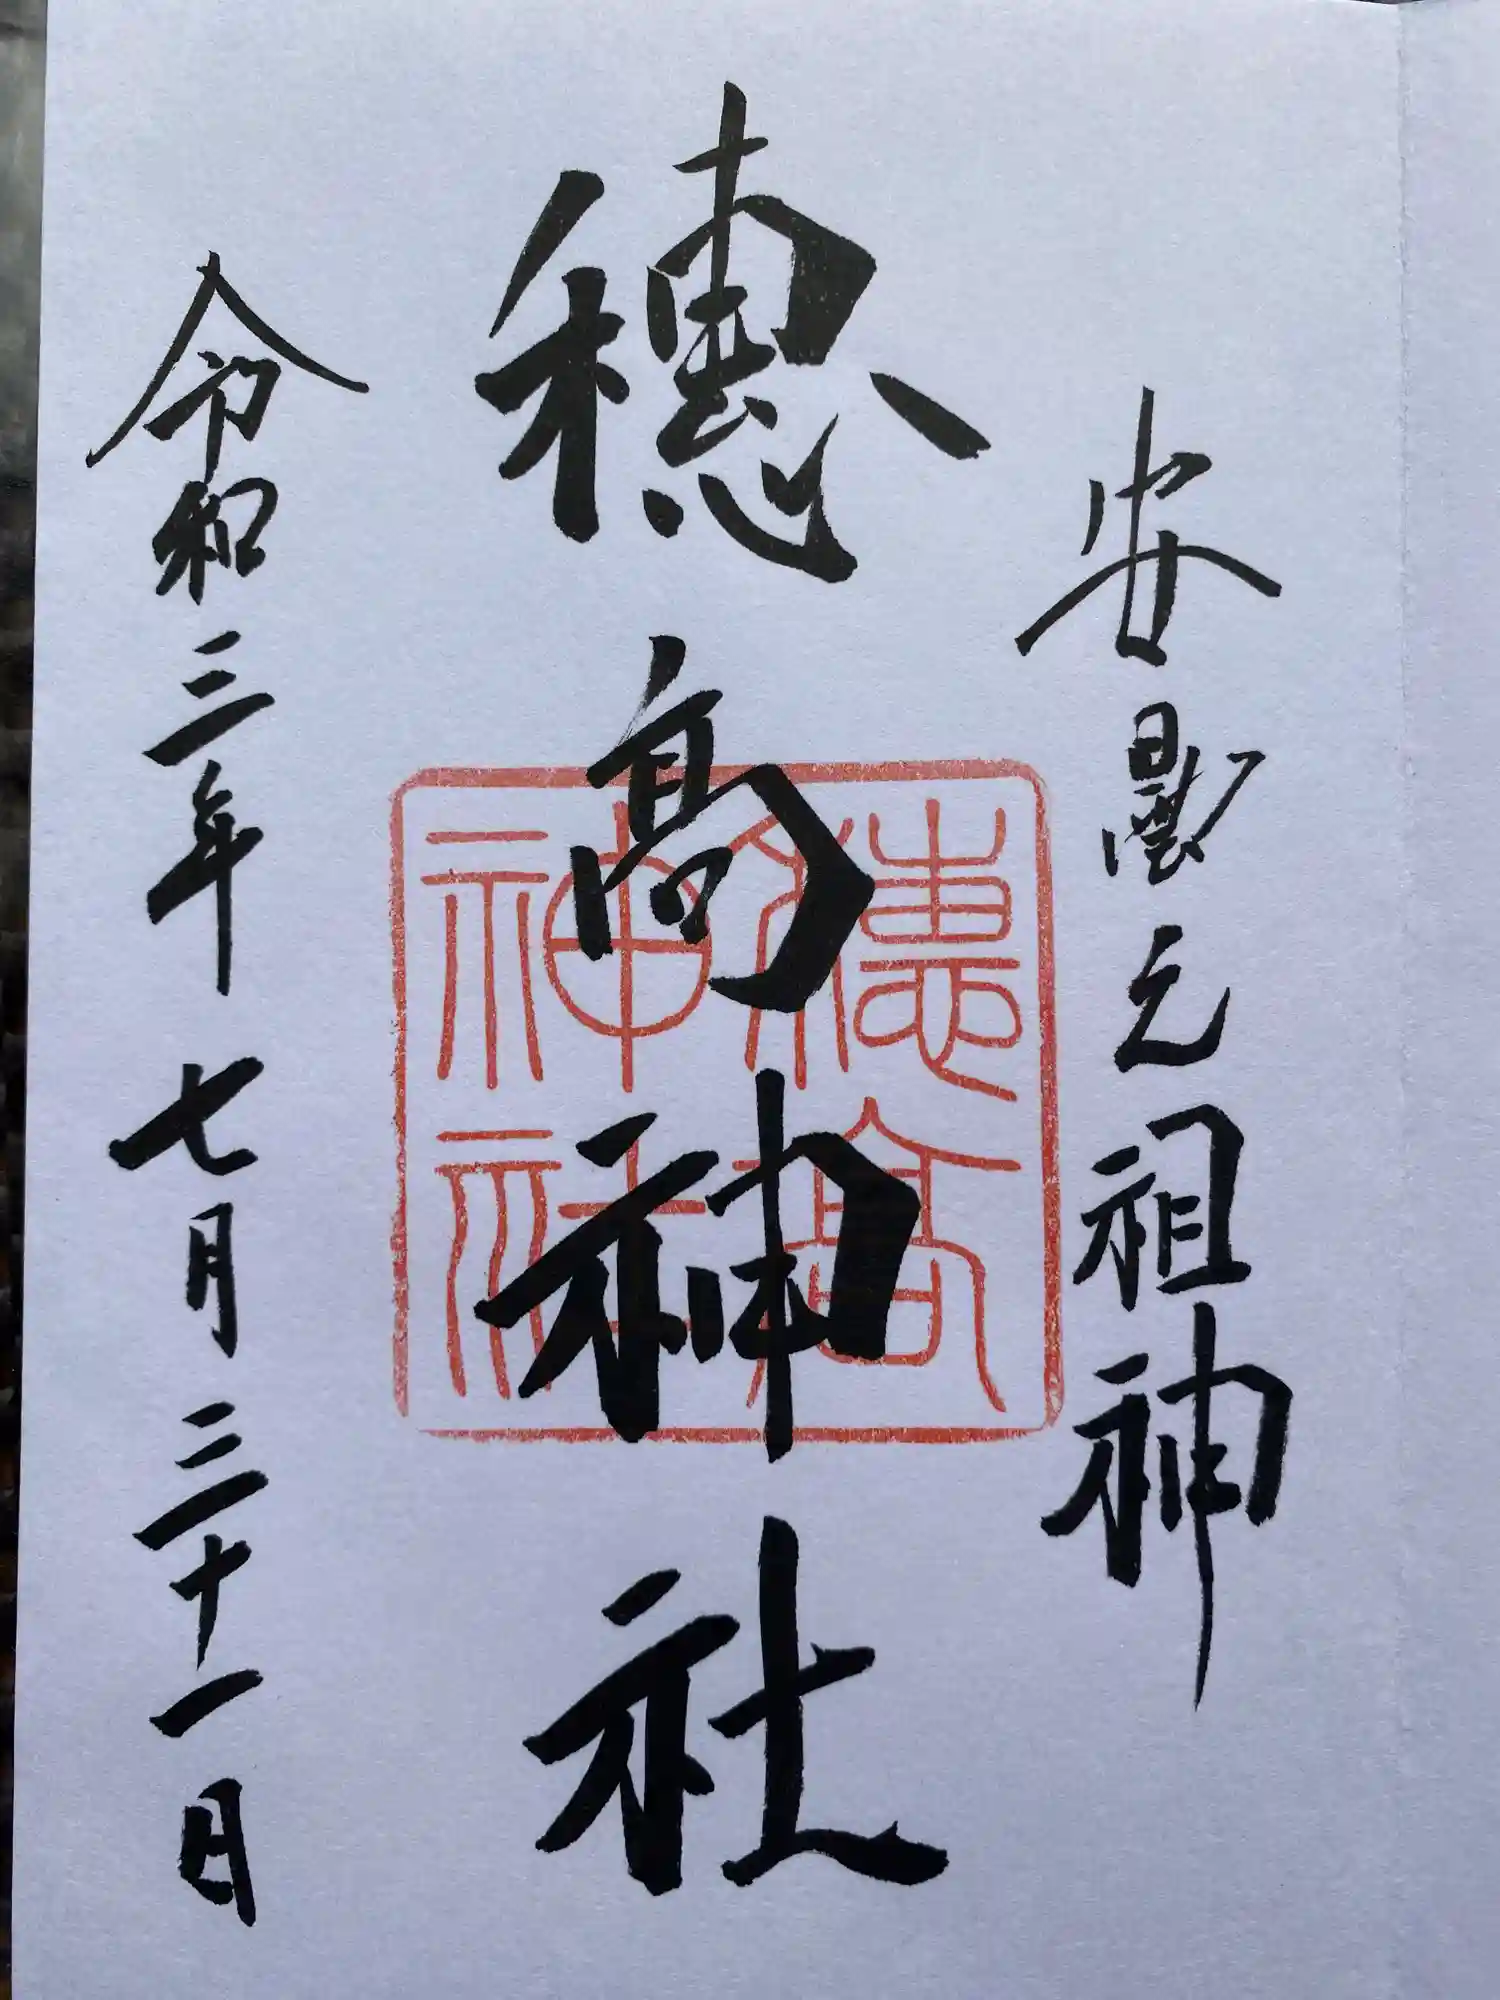 安曇元祖神
穂高神社
穂高
神社
令和三年七月三十一日